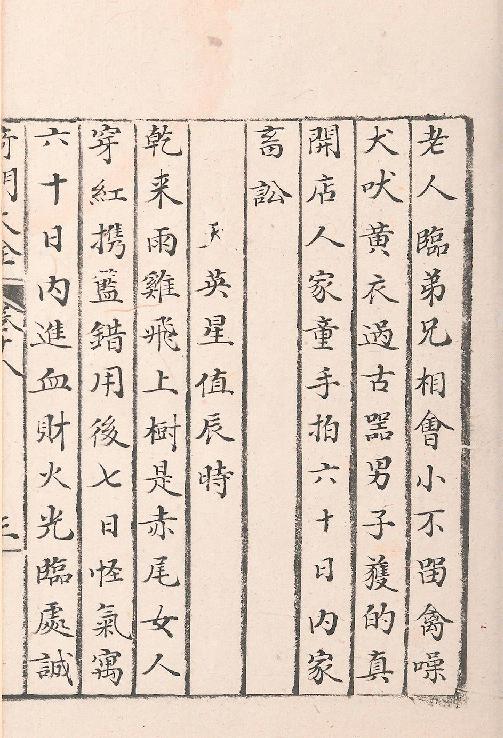 老人臨弟兄相會小不留禽噪
犬吠黃衣過古噐男子獲的真
開店人家童手拍六十日内家
畜訟
天英星值辰時
乾来雨雞飛上樹是赤尾女人
穿紅携藍錯用後七日怪氣寓
六十日内進血財火光臨處誠